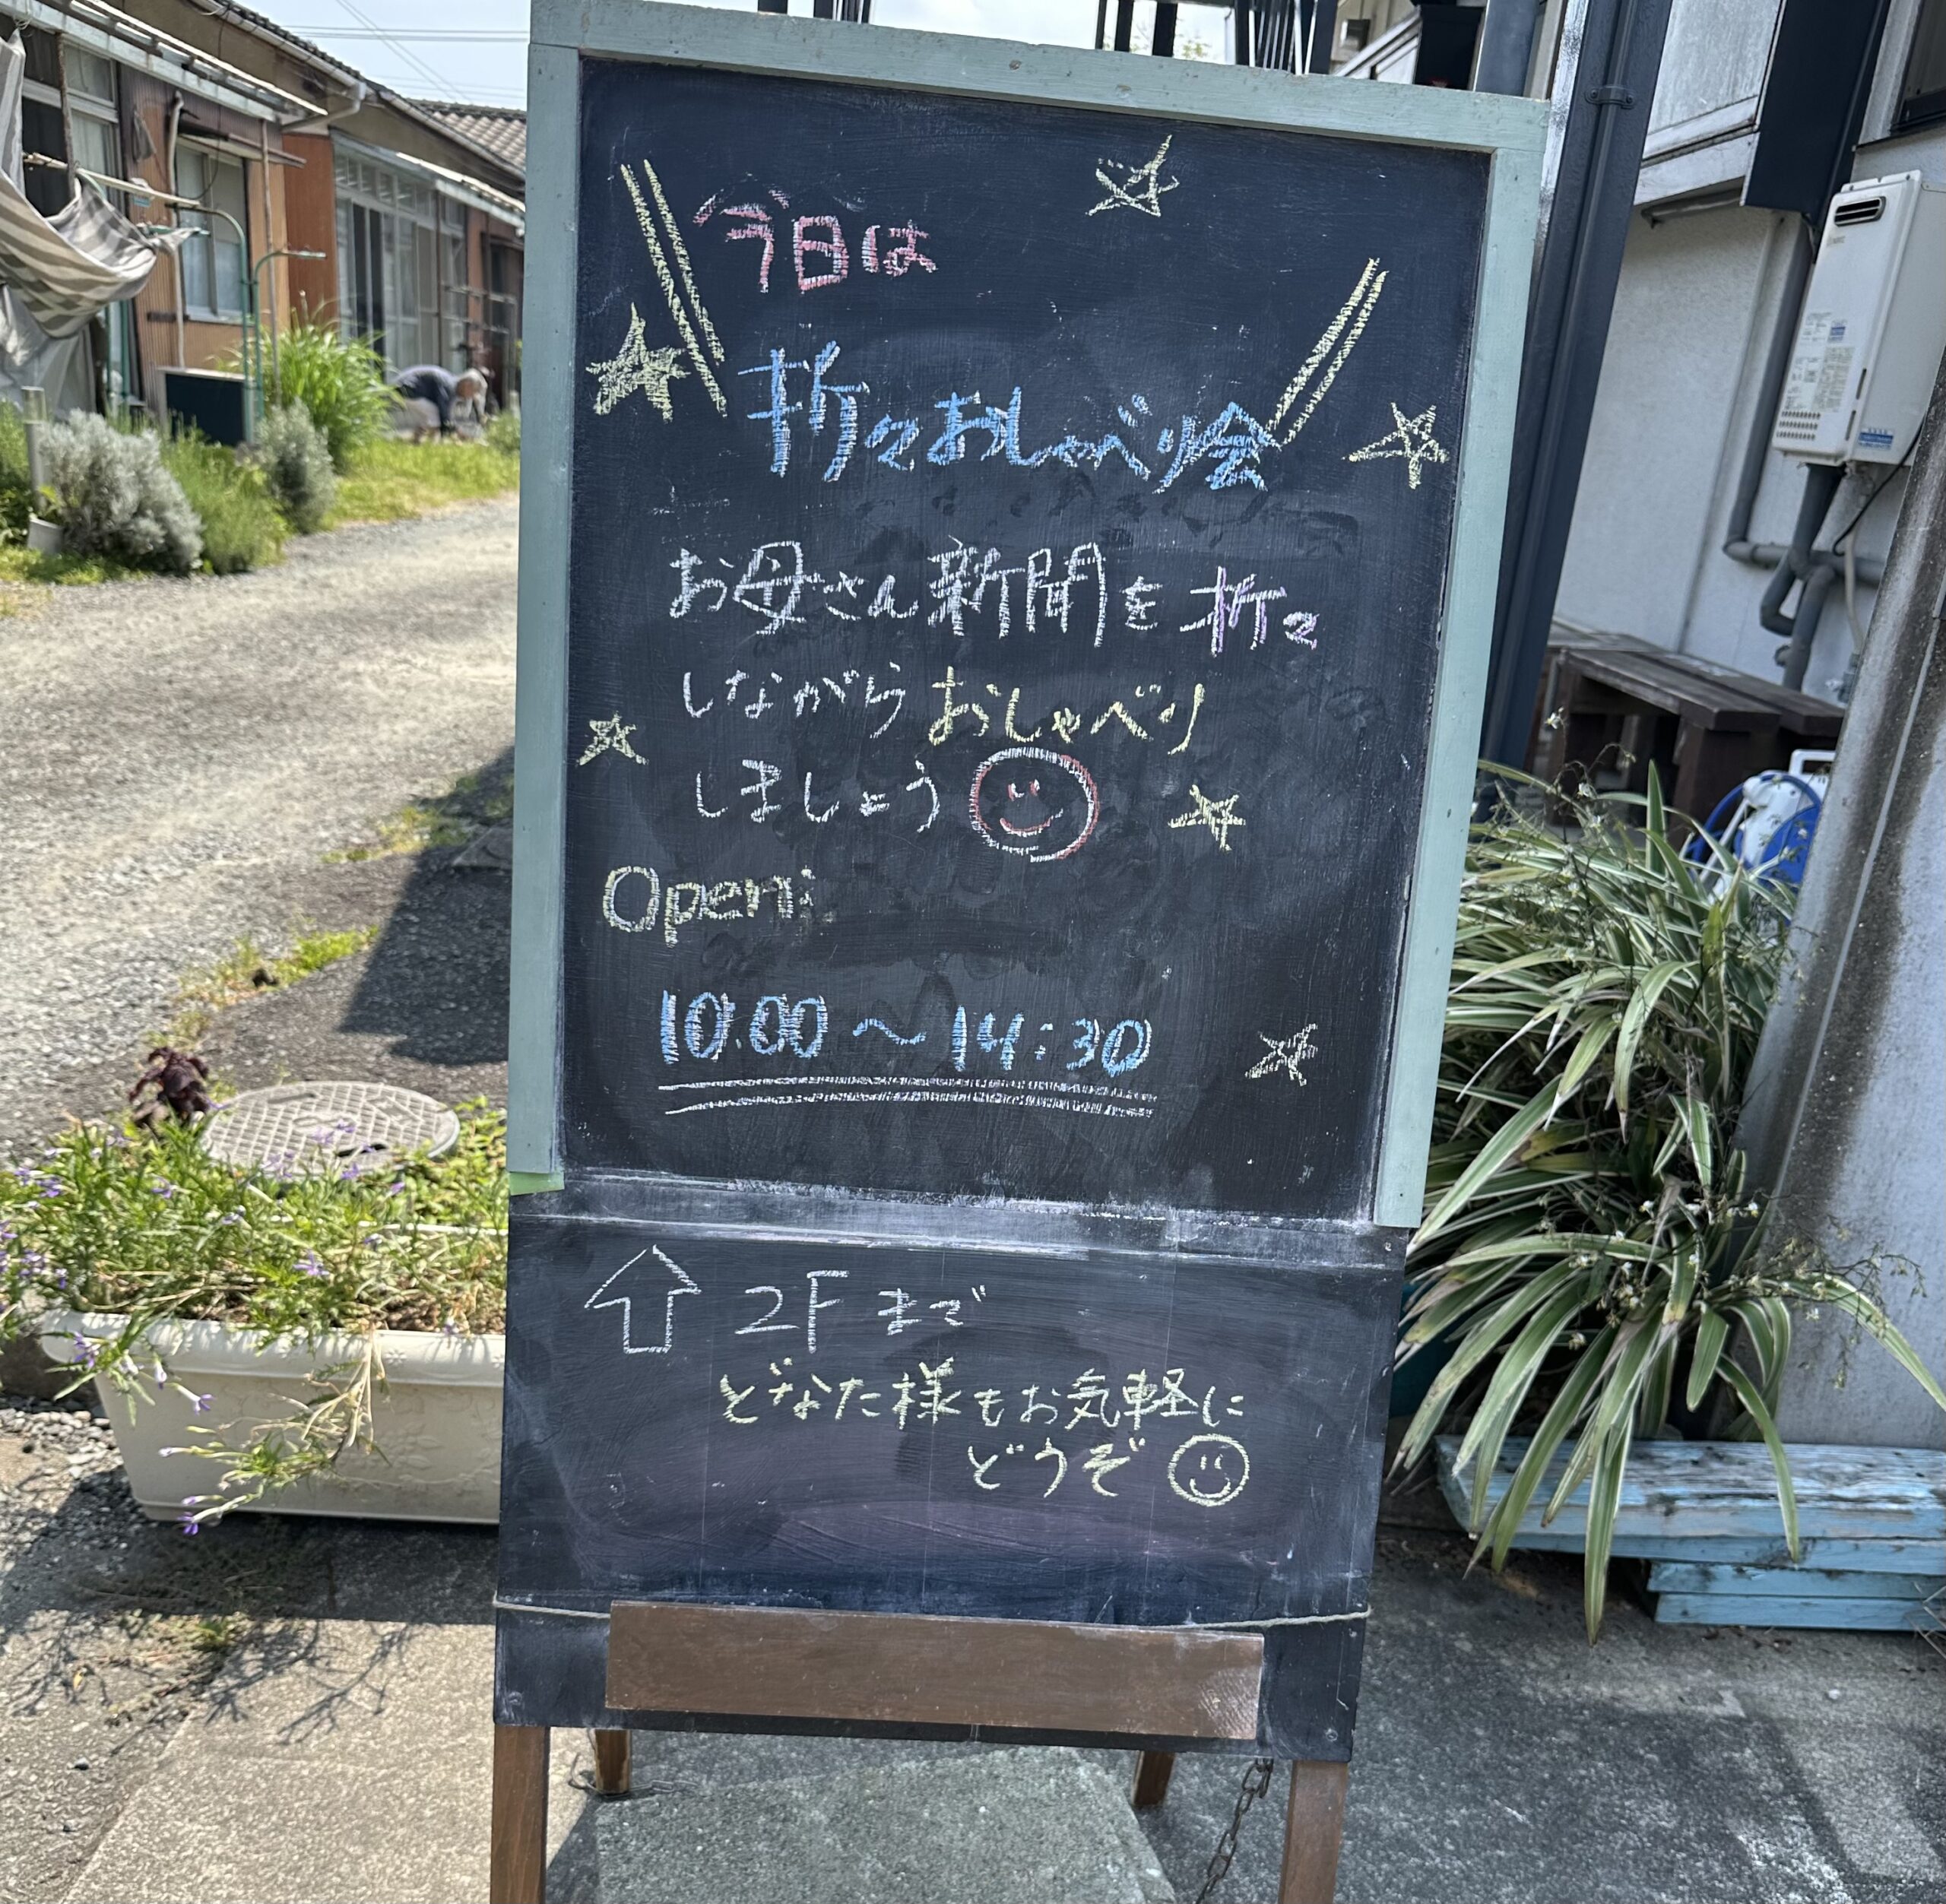 今日は
折々おしゃべり会
お母さん新聞を折々
しながらおしゃべり
しましょう
Open:
10:00〜14:30
2Fまで
どなた様もお気軽に
どうぞ